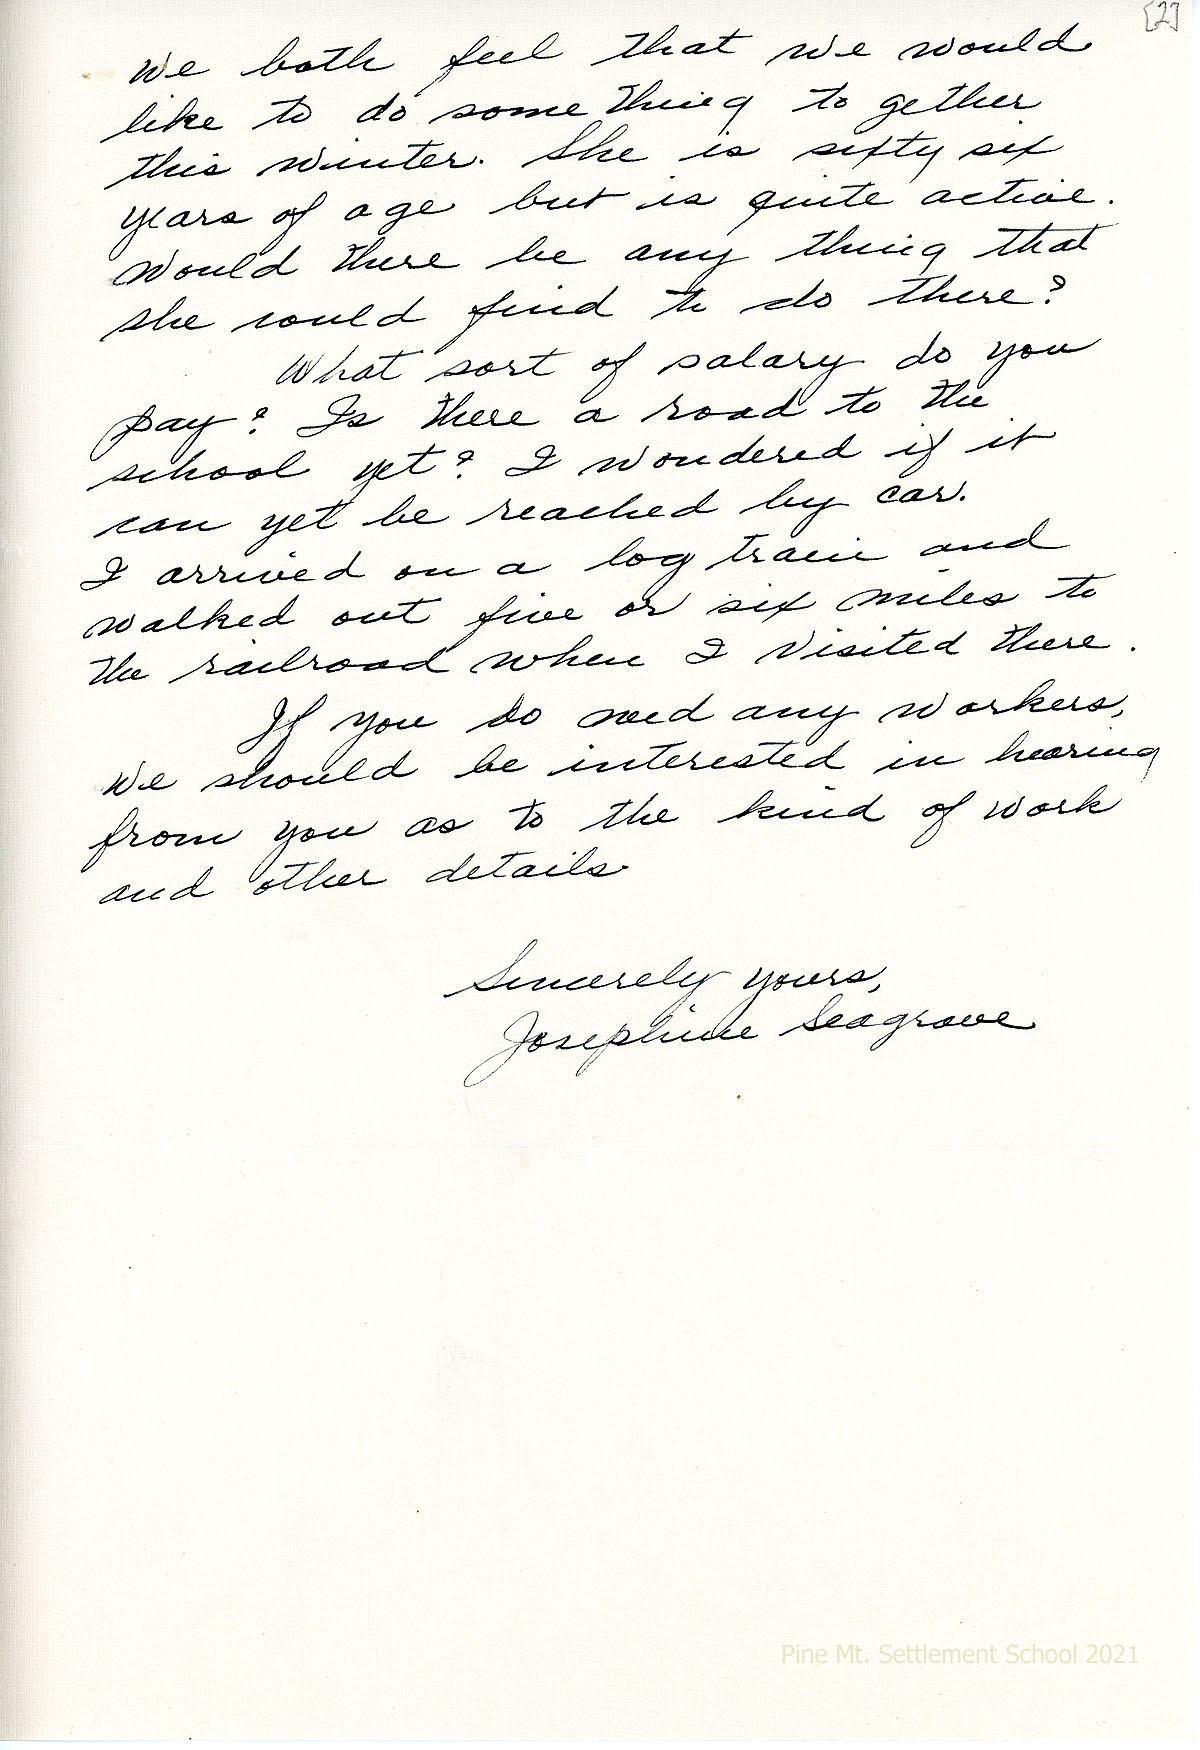 [2]
We both feel that we would
like to do some thing to gether
this winter. She is sixty six
years of age but is quite active.
Would there be any thing that
she could find to do there?
What sort of salary do you
pay? Is there a road to the
school yet? I wondered if it
can yet be reached by car.
I arrived on a log train and
walked out five or six miles to
the railroad when I visited there.
If you do need any workers,
we should be interested in hearing
from you as to the kind of work
and other details.
Sincerely yours,
Josephine Seagrave
Pine Mt. Settlement School 2021